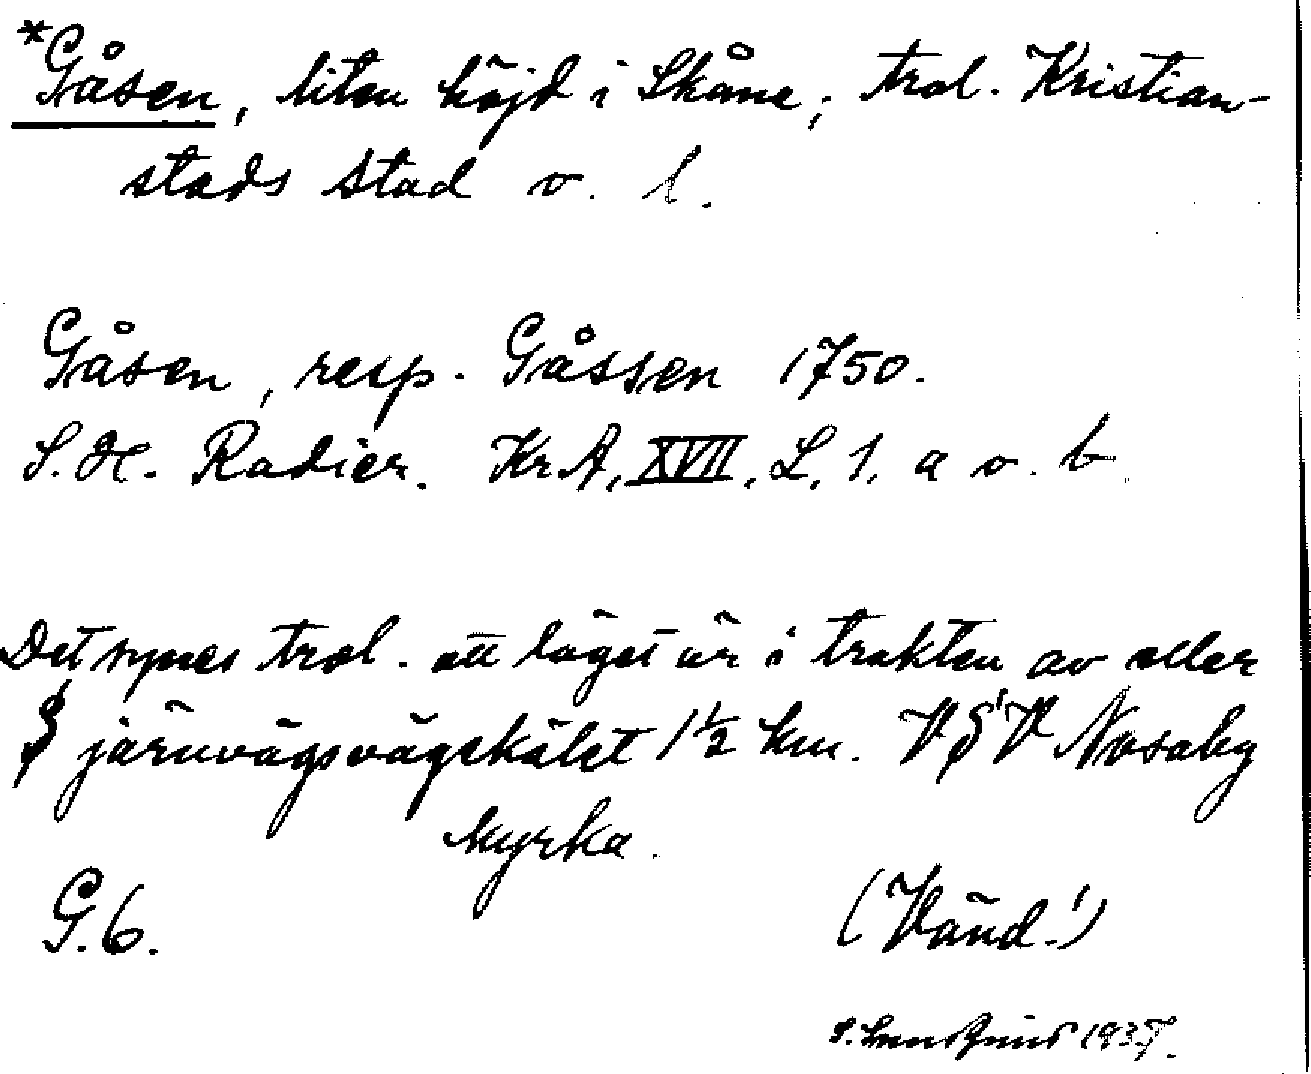 *Gåsen, liten höjd i Skåne; trol. Kristian-
stads stad o. l.
Gåsen, resp. Gåssen 1750.
S. H. Radier. KrA, XVII, L, 1, a o. b
Det synes trol. att läget är i trakten av eller
S järnvägsvägskälet 1½ km. VSV Nosaby
kyrka.
G. 6.
(Vänd!)
1937.